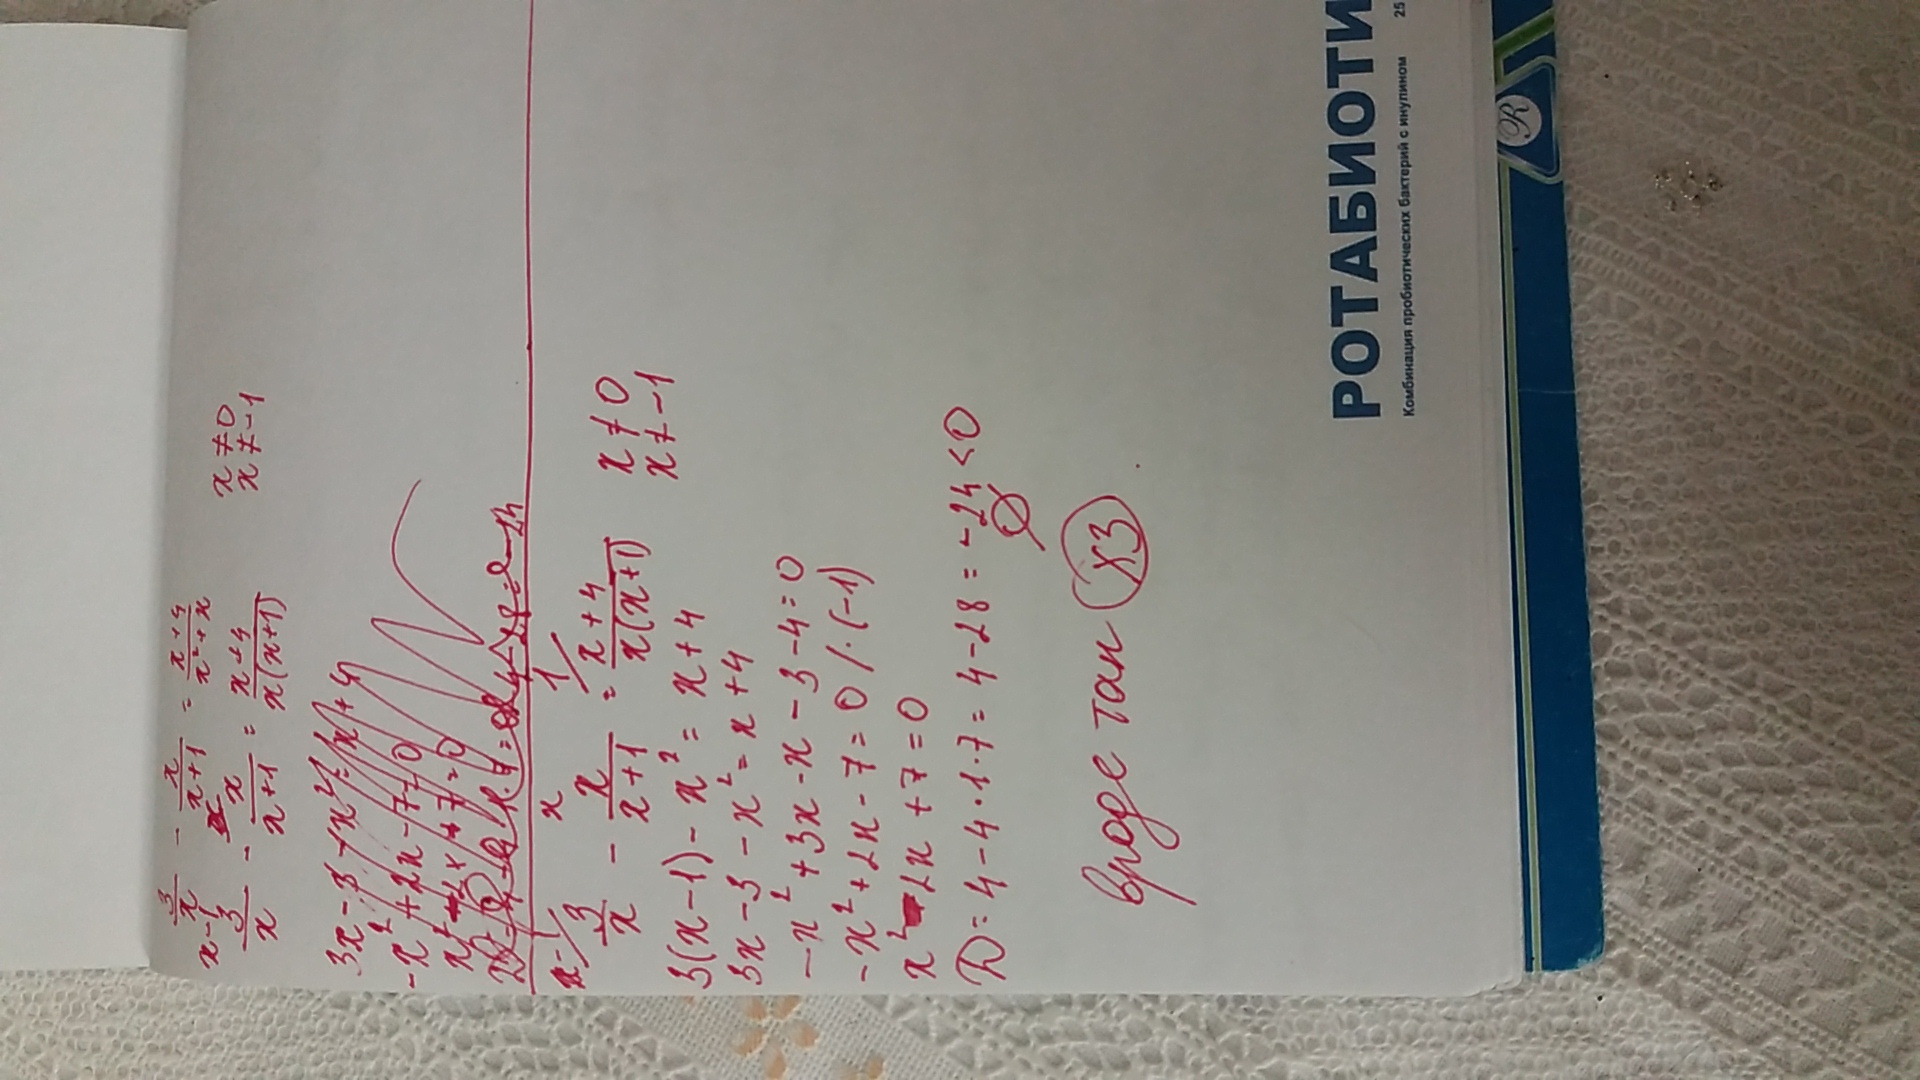 3/x - x/(x+1) = (x+4)/(x²+x)
x-1
3/x - x/(x+1) = (x+4)/(x(x+1))
x ≠ 0
x ≠ -1
3x-3-x²=x+4
-x²+2x-7=0
x-1 x 1
3/x - x/(x+1) = (x+4)/(x(x+1))
x ≠ 0
x ≠ -1
3(x-1)-x²=x+4
3x-3-x²=x+4
-x²+3x-x-3-4=0
-x²+2x-7=0 /·(-1)
x²-2x+7=0
D=4-4·1·7=4-28=-24<0
∅
вроде так (хз)
РОТАБИОТИ
Комбинация пробиотических бактерий с инулином
25
R